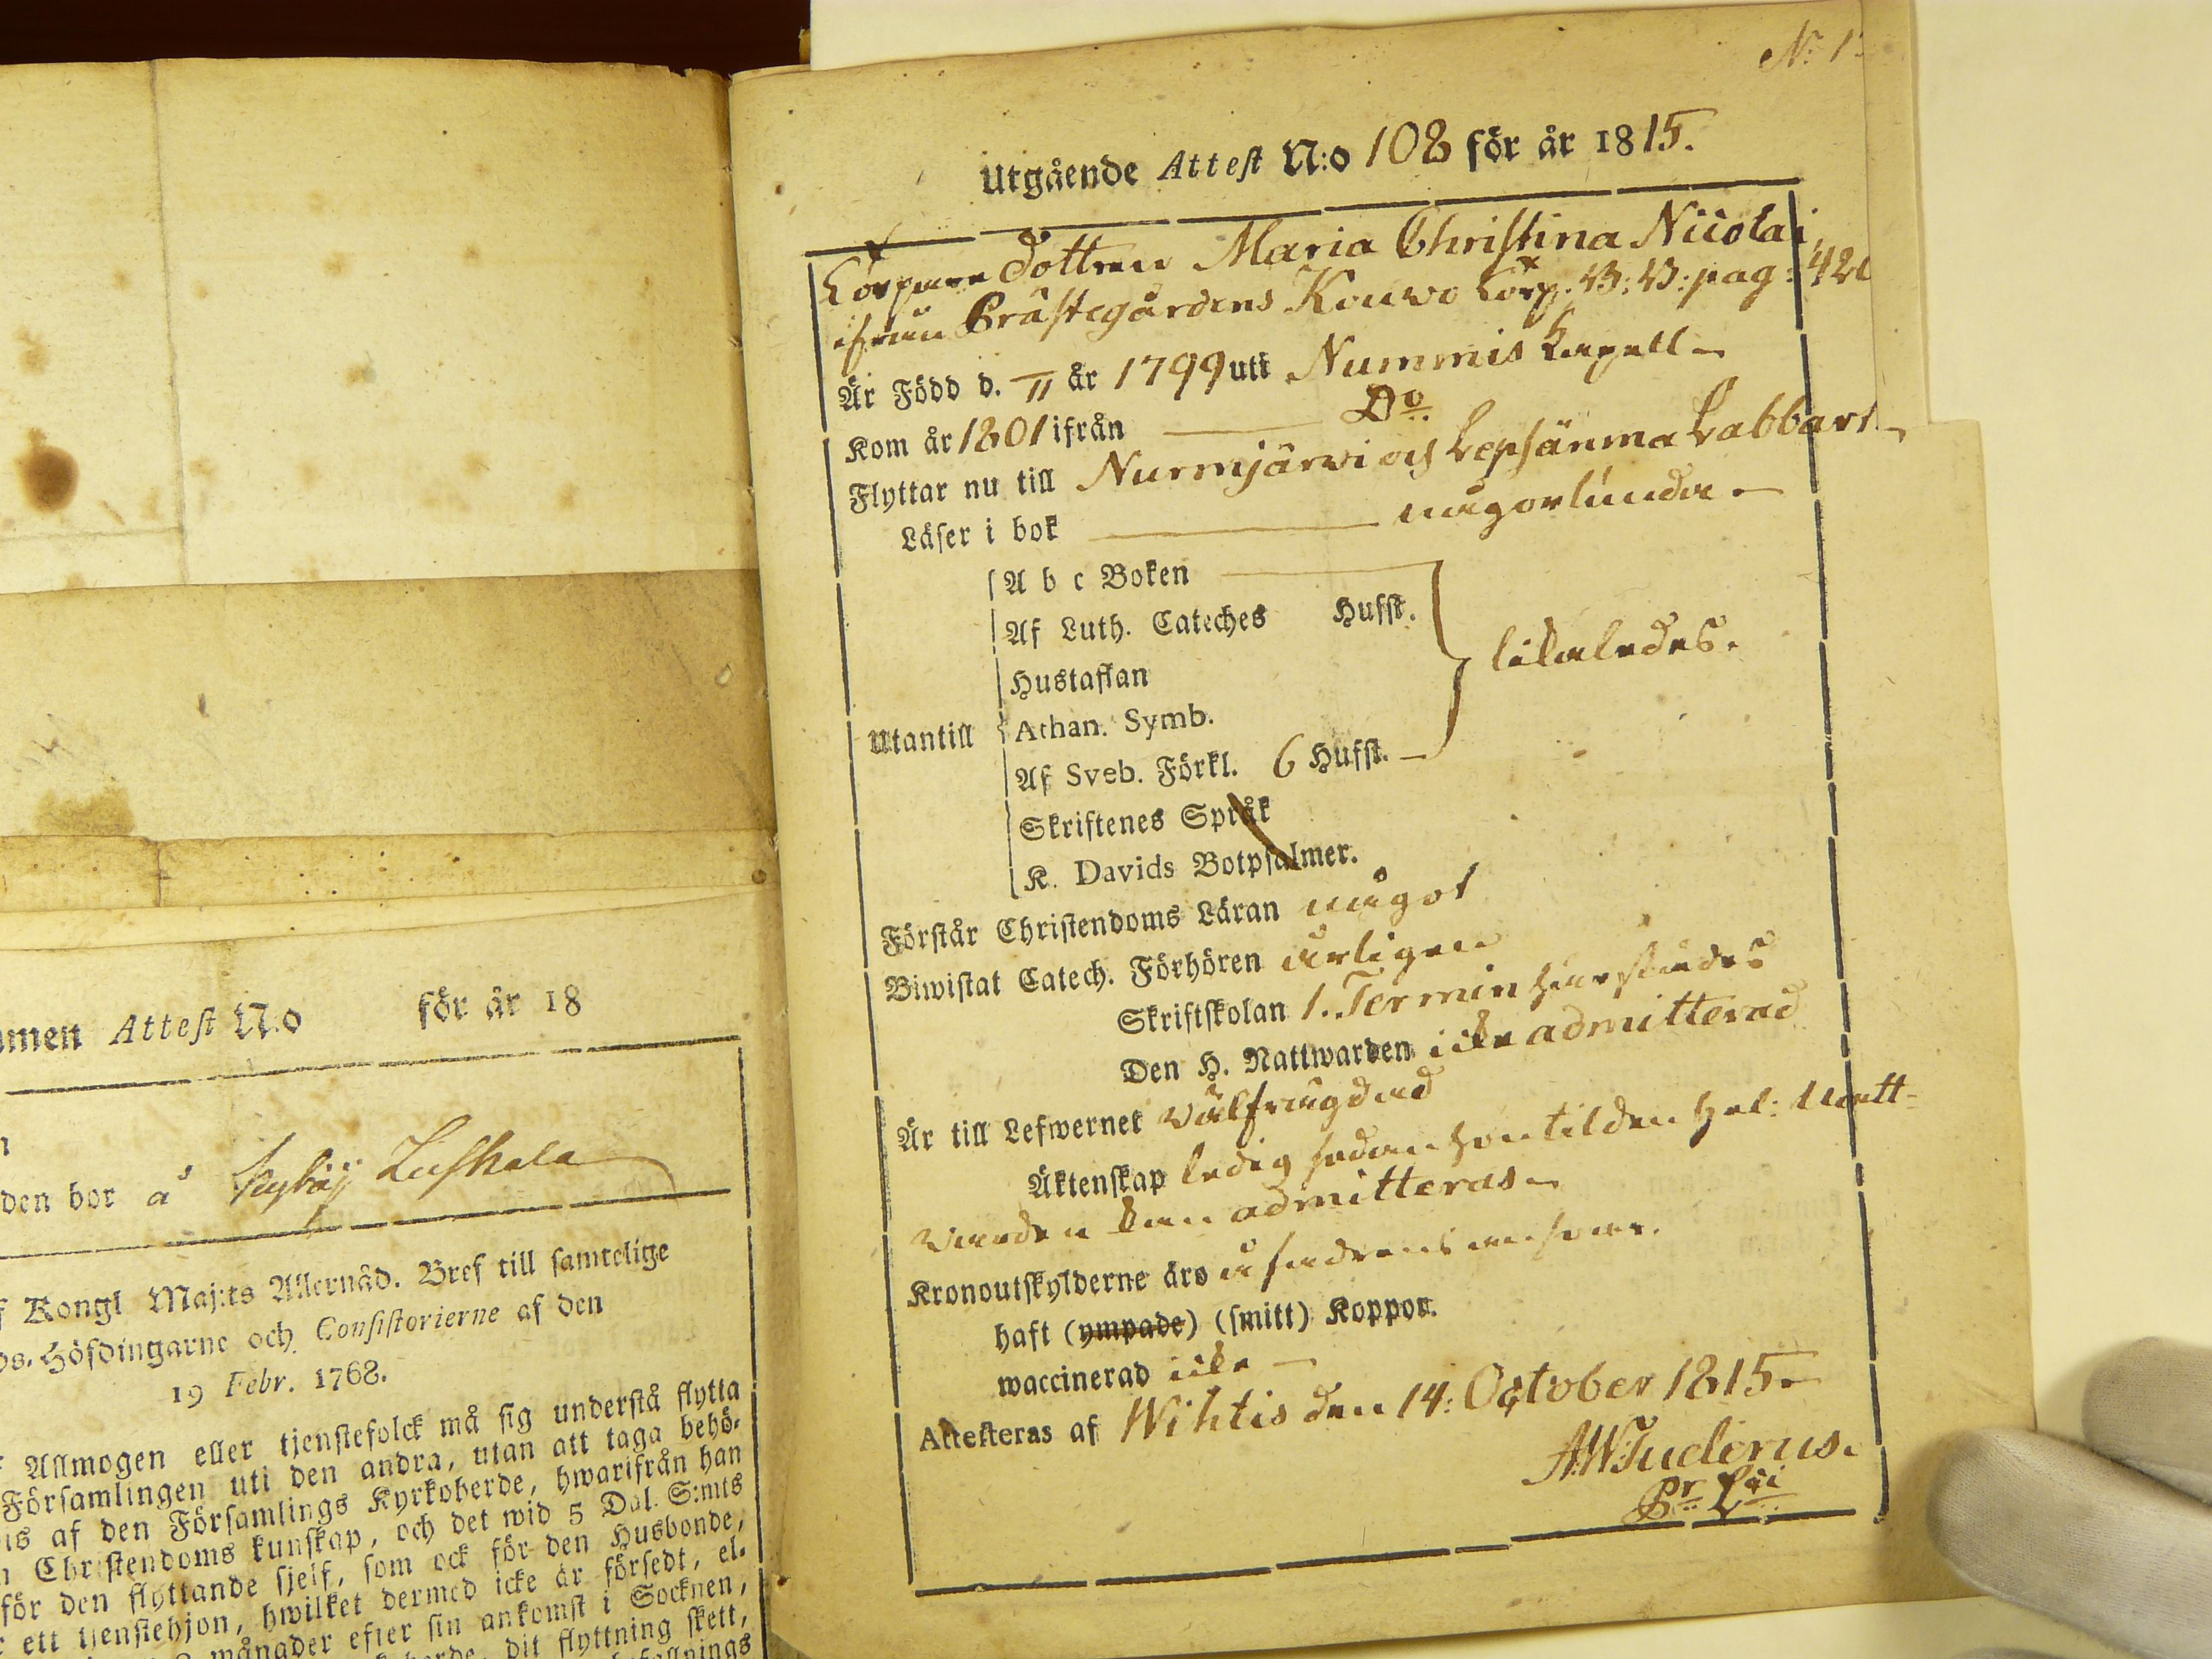 N:o 1.
Utgående Attest N:o 108 för år 1815.
Torpare Dottren Maria Christina Nicolai,
ifrån Prästegårdens Kouvo Torp. B: B: pag: 420
Är Född d. — 11 år 1799 uti Nummis Kapell –
Kom år 1801 ifrån D:o
Flyttar nu till Nurmjärvi och Lepsänma Labbart –
Läser i bok någorlunda –
A b c Boken
Af Luth. Cateches Hufst.
Hustaflan
Utantill Athan. Symb.
likaledes.
Af Sveb. Förkl. 6 Hufst. –
Skriftenes Språk
K. Davids Botpsalmer.
Förstår Christendoms Läran något
Biwistat Catech. Förhören årligen
Skriftskolan 1. Termin härstädes
Den H. Nattwarden icke admitterad
Är till Lefwernet välfrägdad
Äktenskap ledig sedan hon til den Hel: Natt-
varden kan admitteras –
Kronoutskylderne äro å fadrens ansvar.
haft (ympade) (smitt) Koppor.
waccinerad icke –
Attesteras af Wihtis den 14: October 1815 –
A.W Tuderus.
Pr. L:ci
men Attest N:o för år 18
den bor å Kuhala
Kongl Maj:ts Allernåd. Bref till samtelige
ds. Höfdingarne och Consistorierne af den
19 Febr. 1768.
Allmogen eller tjenstefolck må sig understå flytta
Församlingen uti den andra, utan att taga behö-
is af den Församlings Kyrkoherde, hwarifrån han
Christendoms kunskap, och det wid 5 Dal. S:mts
för den flyttande sjelf, som ock för den Husbonde,
ett tjenstehjon, hwilket dermed icke är försedt, el-
månader efter sin ankomst i Socknen,
dit flyttning skett,